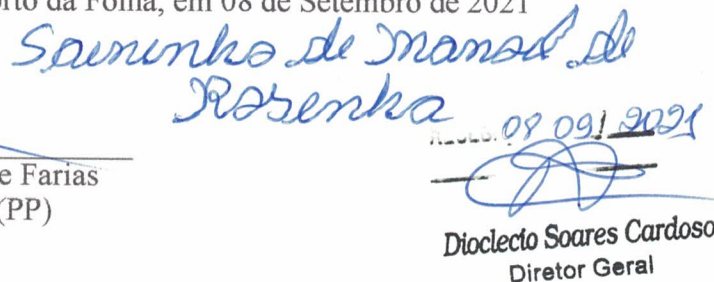 rto da Folha, em 08 de Setembro de 2021
Saininho de Manoel de
Rosenha
08 09/ 2021
e Farias
(PP)
Dioclecio Soares Cardoso
Diretor Geral